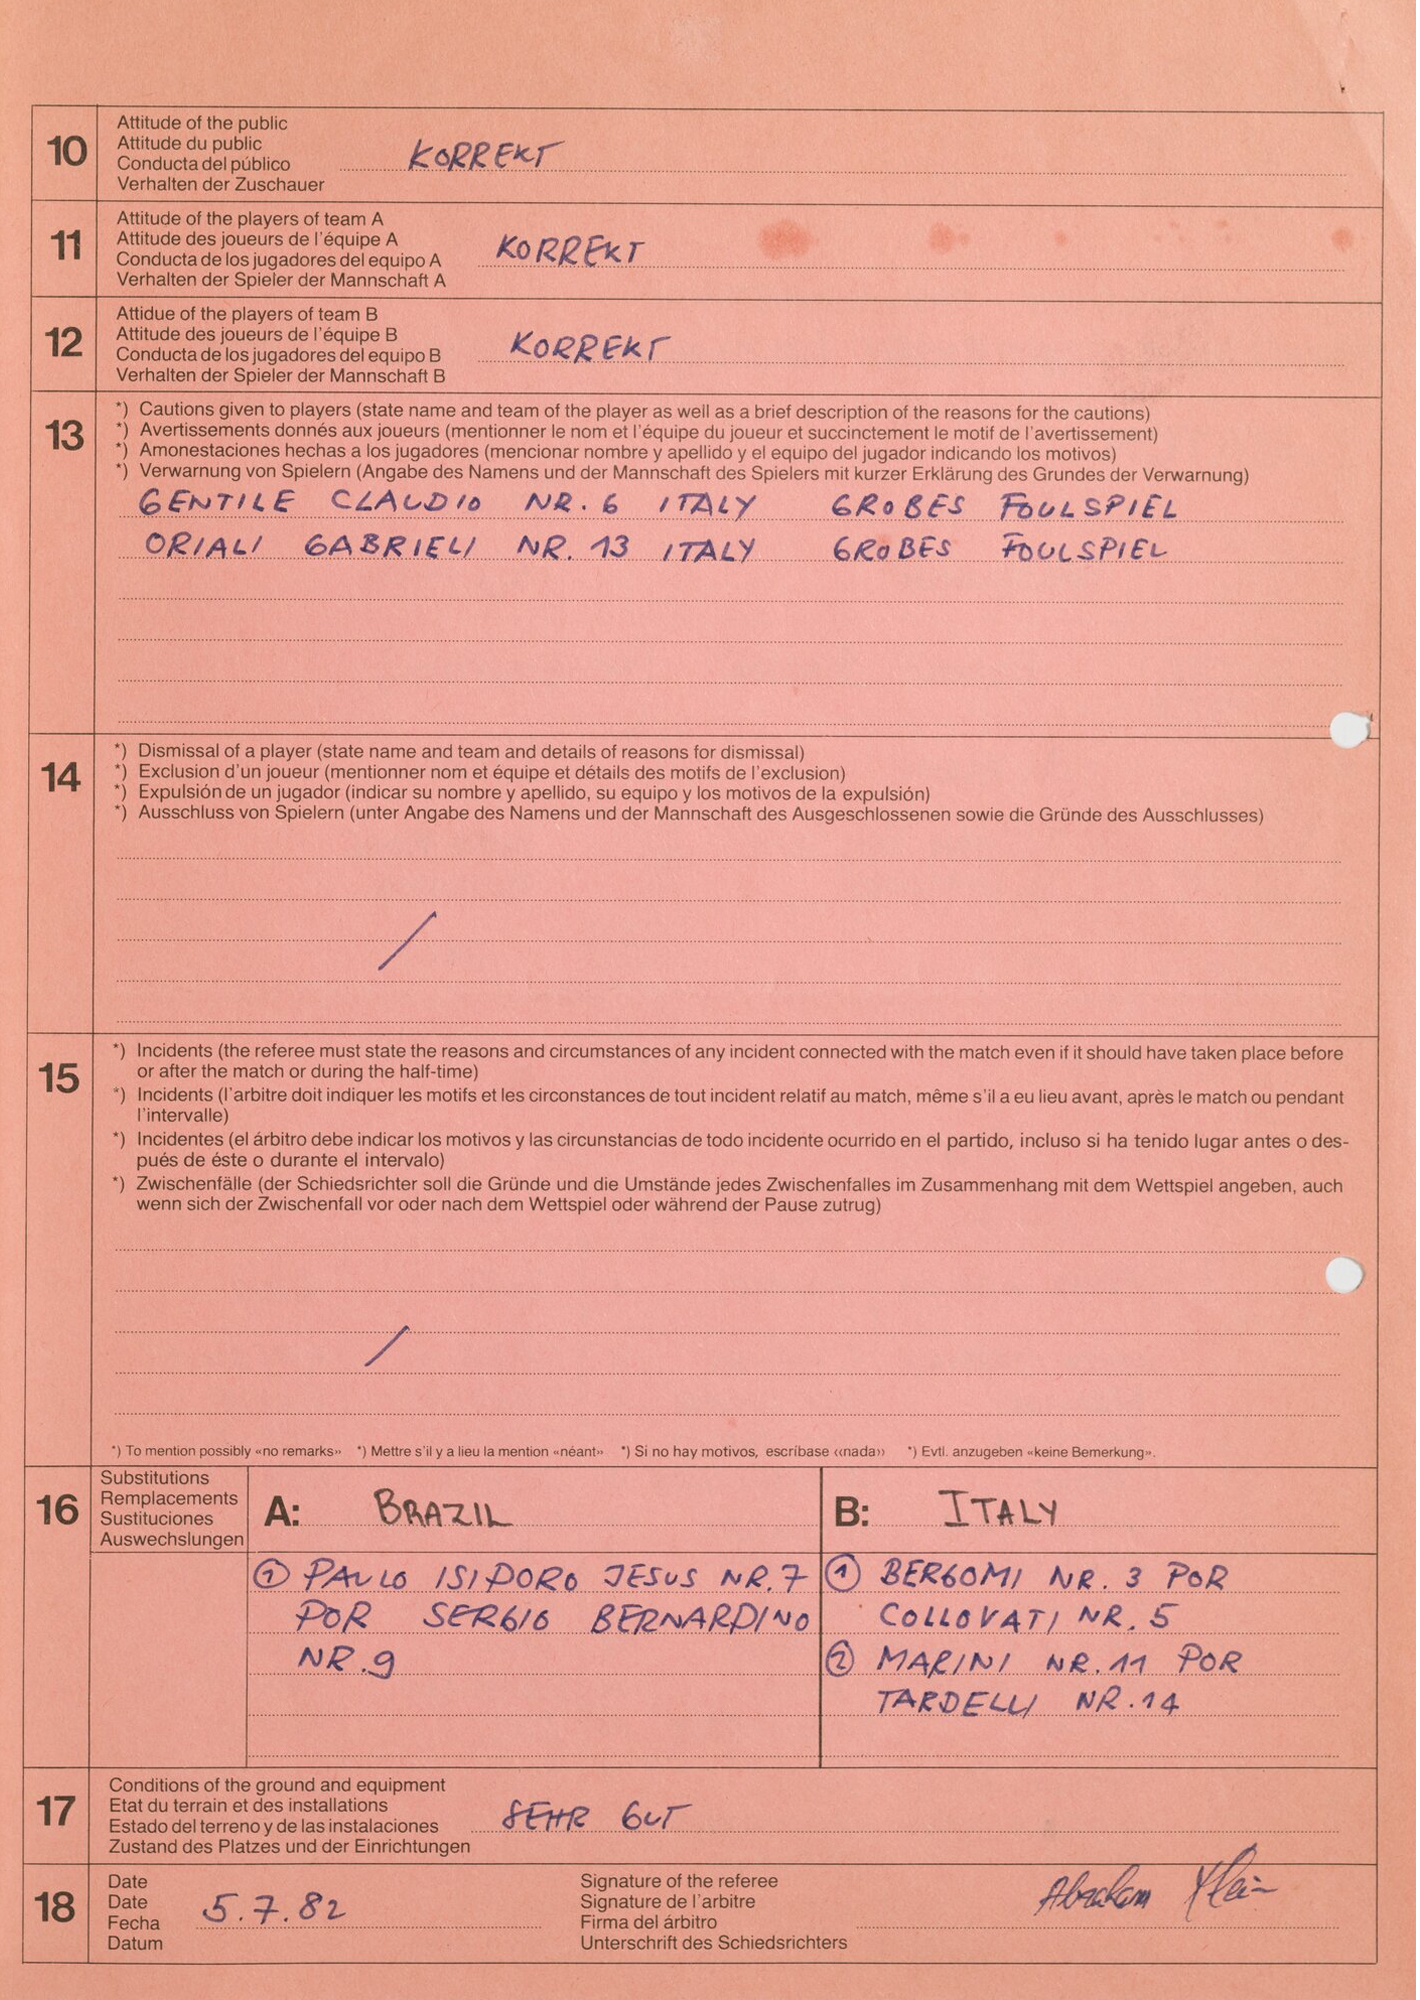 10
Attitude of the public
Attitude du public
Conducta del público
Verhalten der Zuschauer
KORREKT
11
Attitude of the players of team A
Attitude des joueurs de l'équipe A
Conducta de los jugadores del equipo A
Verhalten der Spieler der Mannschaft A
KORREKT
12
Attidue of the players of team B
Attitude des joueurs de l'équipe B
Conducta de los jugadores del equipo B
Verhalten der Spieler der Mannschaft B
KORREKT
13
*) Cautions given to players (state name and team of the player as well as a brief description of the reasons for the cautions)
*) Avertissements donnés aux joueurs (mentionner le nom et l'équipe du joueur et succinctement le motif de l'avertissement)
*) Amonestaciones hechas a los jugadores (mencionar nombre y apellido y el equipo del jugador indicando los motivos)
*) Verwarnung von Spielern (Angabe des Namens und der Mannschaft des Spielers mit kurzer Erklärung des Grundes der Verwarnung)
GENTILE CLAUDIO NR. 6 ITALY GROBES FOULSPIEL
ORIALI GABRIELI NR. 13 ITALY GROBES FOULSPIEL
14
*) Dismissal of a player (state name and team and details of reasons for dismissal)
*) Exclusion d'un joueur (mentionner nom et équipe et détails des motifs de l'exclusion)
*) Expulsión de un jugador (indicar su nombre y apellido, su equipo y los motivos de la expulsión)
*) Ausschluss von Spielern (unter Angabe des Namens und der Mannschaft des Ausgeschlossenen sowie die Gründe des Ausschlusses)
/
15
*) Incidents (the referee must state the reasons and circumstances of any incident connected with the match even if it should have taken place before
or after the match or during the half-time)
*) Incidents (l'arbitre doit indiquer les motifs et les circonstances de tout incident relatif au match, même s'il a eu lieu avant, après le match ou pendant
l'intervalle)
*) Incidentes (el árbitro debe indicar los motivos y las circunstancias de todo incidente ocurrido en el partido, incluso si ha tenido lugar antes o des-
pués de éste o durante el intervalo)
*) Zwischenfälle (der Schiedsrichter soll die Gründe und die Umstände jedes Zwischenfalles im Zusammenhang mit dem Wettspiel angeben, auch
wenn sich der Zwischenfall vor oder nach dem Wettspiel oder während der Pause zutrug)
/
*) To mention possibly «no remarks» *) Mettre s'il y a lieu la mention «néant» *) Si no hay motivos, escríbase «nada» *) Evtl. anzugeben «keine Bemerkung».
16
Substitutions
Remplacements
Sustituciones
Auswechslungen
A: BRAZIL
① PAULO ISIDORO JESUS NR.7
POR SERGIO BERNARDINO
NR.9
B: ITALY
① BERGOMI NR. 3 POR
COLLOVATI NR. 5
② MARINI NR.11 POR
TARDELLI NR.14
17
Conditions of the ground and equipment
Etat du terrain et des installations
Estado del terreno y de las instalaciones
Zustand des Platzes und der Einrichtungen
SEHR GUT
18
Date
Date
Fecha
Datum
5.7.82
Signature of the referee
Signature de l'arbitre
Firma del árbitro
Unterschrift des Schiedsrichters
Abraham Klein